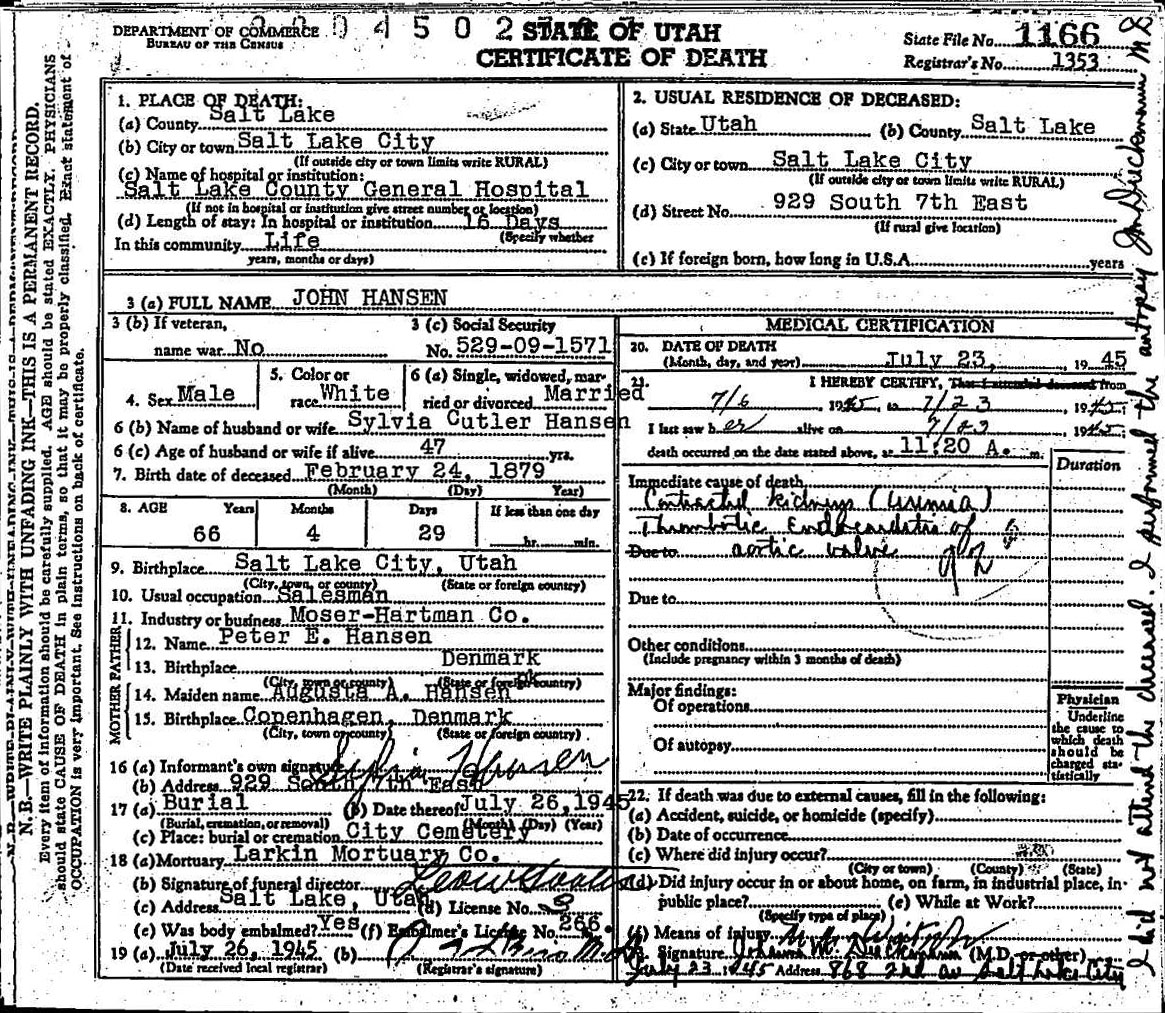 DEPARTMENT OF COMMERCE
BUREAU OF THE CENSUS
0 4 5 0 2
STATE OF UTAH
CERTIFICATE OF DEATH
State File No. 1166
Registrar's No. 1353
N. B.—WRITE PLAINLY WITH UNFADING INK—THIS IS A PERMANENT RECORD.
Every item of information should be carefully supplied. AGE should be stated EXACTLY. PHYSICIANS
should state CAUSE OF DEATH in plain terms, so that it may be properly classified. Exact statement of
OCCUPATION is very important. See instructions on back of certificate.
1. PLACE OF DEATH:
(a) County Salt Lake
(b) City or town Salt Lake City
(If outside city or town limits write RURAL)
(c) Name of hospital or institution:
Salt Lake County General Hospital
(If not in hospital or institution give street number or location)
(d) Length of stay: In hospital or institution 16 Days
(Specify whether
In this community Life
years, months or days)
2. USUAL RESIDENCE OF DECEASED:
(a) State Utah (b) County Salt Lake
(c) City or town Salt Lake City
(If outside city or town limits write RURAL)
(d) Street No. 929 South 7th East
(If rural give location)
(c) If foreign born, how long in U.S.A. years
3 (a) FULL NAME JOHN HANSEN
3 (b) If veteran, 3 (c) Social Security
name war No No. 529-09-1571
4. Sex Male 5. Color or race White 6 (a) Single, widowed, married or divorced Married
6 (b) Name of husband or wife Sylvia Cutler Hansen
6 (c) Age of husband or wife if alive 47 yrs.
7. Birth date of deceased February 24, 1879
(Month) (Day) Year)
8. AGE Years Months Days If less than one day
66 4 29 hr. min.
9. Birthplace Salt Lake City, Utah
(City, town, or county) (State or foreign country)
10. Usual occupation Salesman
11. Industry or business Moser-Hartman Co.
FATHER
12. Name Peter E. Hansen
13. Birthplace Denmark
(City, town or county) (State or foreign country)
MOTHER
14. Maiden name Augusta A. Hansen ok
15. Birthplace Copenhagen, Denmark
(City, town or county) (State or foreign country)
16 (a) Informant's own signature Sylvia Hansen
(b) Address 929 South 7th East
17 (a) Burial (b) Date thereof July 26, 1945
(Burial, cremation, or removal) (Month) (Day) (Year)
(c) Place: burial or cremation City Cemetery
18 (a) Mortuary Larkin Mortuary Co.
(b) Signature of funeral director
(c) Address Salt Lake, Utah (d) License No.
(e) Was body embalmed? Yes (f) Embalmer's License No. 266
19 (a) July 26, 1945 (b)
(Date received local registrar) (Registrar's signature)
MEDICAL CERTIFICATION
20. DATE OF DEATH
(Month, day, and year) July 23, 1945
21. I HEREBY CERTIFY, That I attended deceased from
7/6 1945, to 7/23 1945;
I last saw her alive on 7/23 1945;
death occurred on the date stated above, at 11:20 A. m.
Duration
Immediate cause of death
Contracted kidneys (Uremia)
Thrombotic Endocarditis of
Due to aortic valve
Due to
Other conditions
(Include pregnancy within 3 months of death)
Major findings:
Of operations
Of autopsy
Physician
Underline
the cause to
which death
should be
charged sta-
tistically
22. If death was due to external causes, fill in the following:
(a) Accident, suicide, or homicide (specify)
(b) Date of occurrence
(c) Where did injury occur?
(City or town) (County) (State)
(d) Did injury occur in or about home, on farm, in industrial place, in
public place? (e) While at Work?
(Specify type of place)
(f) Means of injury
Signature (M.D. or other)
July 23 1945 Address 868 2nd av Salt Lake City
I did not attend the deceased. I performed the autopsy M D